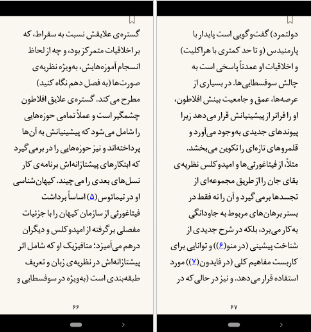 گستره‌ی علایقش نسبت به سقراط، که
بر اخلاقیات متمرکز بود، و چه از لحاظ
انسجام آموزه‌هایش، به‌ویژه نظریه‌ی
صورت‌ها (به فصل دهم نگاه کنید)
مطرح می کند. گستره‌ی علایق افلاطون
چشمگیر است و عملاً تمامی حوزه‌هایی
را شامل می‌شود که پیشینیانش به آن‌ها
پرداخته‌اند و نیز حوزه‌هایی را در برمی‌گیرد
که ابتکارهای پیشتازانه‌اش برنامه‌ی کار
نسل‌های بعدی را می‌چیند. کیهان‌شناسی
او در تیمائوس(۵) اساساً برداشت
فیثاغورثی از سازمان کیهان را با جزئیات
مفصلی برگرفته از امپدوکلس و دیگران
درهم می‌آمیزد؛ متافیزیک او که شامل اثر
پیشتازانه‌اش در نظریه‌ی زبان و تعریف
طبقه‌بندی است (به‌ویژه در سوفسطایی و
۶۶
دولتمرد) گفت‌وگویی است پایدار با
پارمنیدس (و تا حد کمتری با هراکلیت)
و اخلاقیات او عمدتاً پاسخی است به
چالش سوفسطایی‌ها. در بسیاری از
عرصه‌ها، عمق و جامعیت بینش افلاطون،
او را فراتر از پیشینیانش قرار می‌دهد زیرا
پیوندهای جدیدی به‌وجود می‌آورد و
قلمروهای تازه‌ای را تکوین می‌بخشد.
مثلاً، از فیثاغورثی‌ها و امپدوکلس نظریه‌ی
بقای جان را از طریق مجموعه‌ای از
تجسدها برمی گیرد و آن را نه فقط در
بستر برهان‌های مربوط به جاودانگی
به‌کار می‌برد، بلکه در شرح جدیدی از
شناخت پیشینی (در منو(۶)) و توانایی برای
کاربست مفاهیم کلی (در فایدون(۷)) مورد
استفاده قرار می‌دهد، و نیز در حالی که در
۶۷